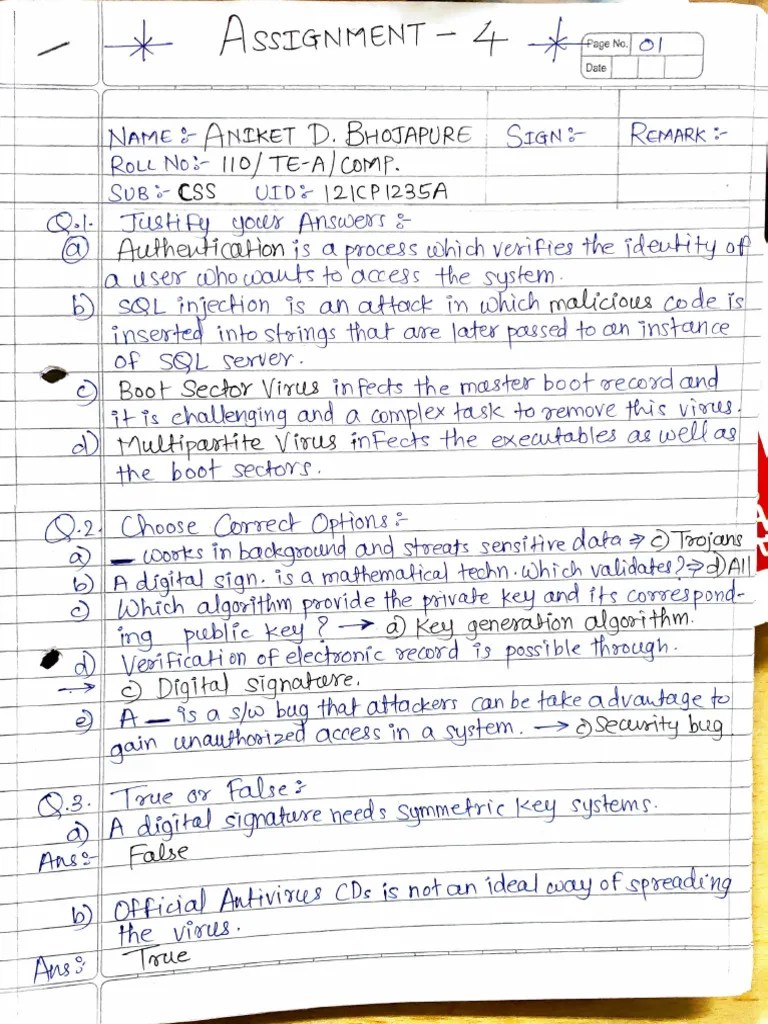 ASSIGNMENT - 4
Page No. 01
Date
NAME :- ANIKET D. BHOJAPURE SIGN :- REMARK :-
ROLL NO:- 110/TE-A/COMP.
SUB :- CSS UID:- 121CP1235A
Q.1. Justify your Answers :-
a) Authentication is a process which verifies the identity of
a user who wants to access the system.
b) SQL injection is an attack in which malicious code is
inserted into strings that are later passed to an instance
of SQL server.
c) Boot Sector Virus infects the master boot record and
it is challenging and a complex task to remove this virus.
d) Multipartite Virus infects the executables as well as
the boot sectors.
Q.2. Choose Correct Options :-
a) — works in background and streats sensitive data ⇒ c) Trojans
b) A digital sign. is a mathematical techn. which validates? ⇒ d) All
c) Which algorithm provide the private key and its correspond-
ing public key? → a) Key generation algorithm.
d) Verification of electronic record is possible through.
→ c) Digital signature.
e) A — is a s/w bug that attackers can be take advantage to
gain unauthorized access in a system. → c) Security bug
Q.3. True or False :-
a) A digital signature needs symmetric key systems.
Ans :- False
b) Official Antivirus CDs is not an ideal way of spreading
the virus.
Ans :- True